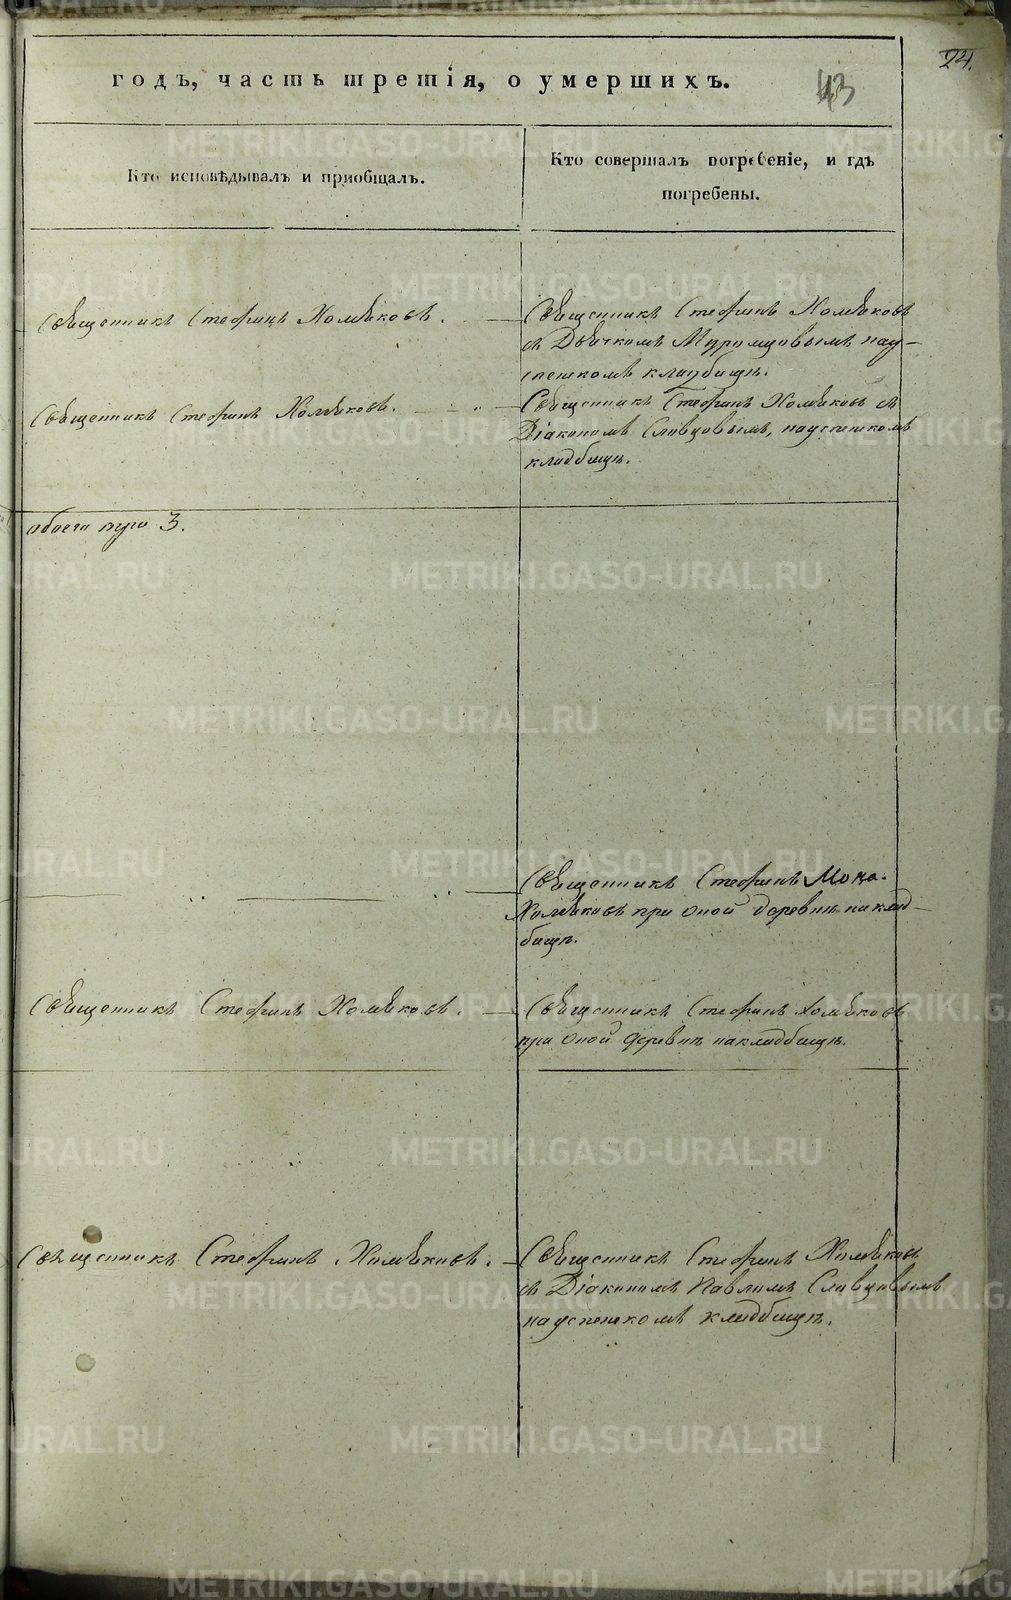 24.
годъ, часть третія, о умершихъ.
43
Кто исповѣдывалъ и пріобщалъ.
Кто совершалъ погребеніе, и гдѣ
погребены.
Священникъ Стефанъ Хомяковъ.
Священникъ Стефанъ Хомяковъ
съ Дьячкомъ Муромцовымъ на у-
спенскомъ кладбищѣ.
Священникъ Стефанъ Хомяковъ.
Священникъ Стефанъ Хомяковъ съ
Діакономъ Словцовымъ, на успенскомъ
кладбищѣ.
обоего пола 3.
Священникъ Стефанъ
Хомяковъ при оной деревнѣ наклад-
бищѣ.
Священникъ Стефанъ Хомяковъ.
Священникъ Стефанъ Хомяковъ
при оной деревнѣ на кладбищѣ.
Священникъ Стефанъ Хомяковъ.
Священникъ Стефанъ Хомяковъ
съ Діакономъ Павломъ Словцовымъ
на успенскомъ кладбищѣ.
METRIKI.GASO-URAL.RU